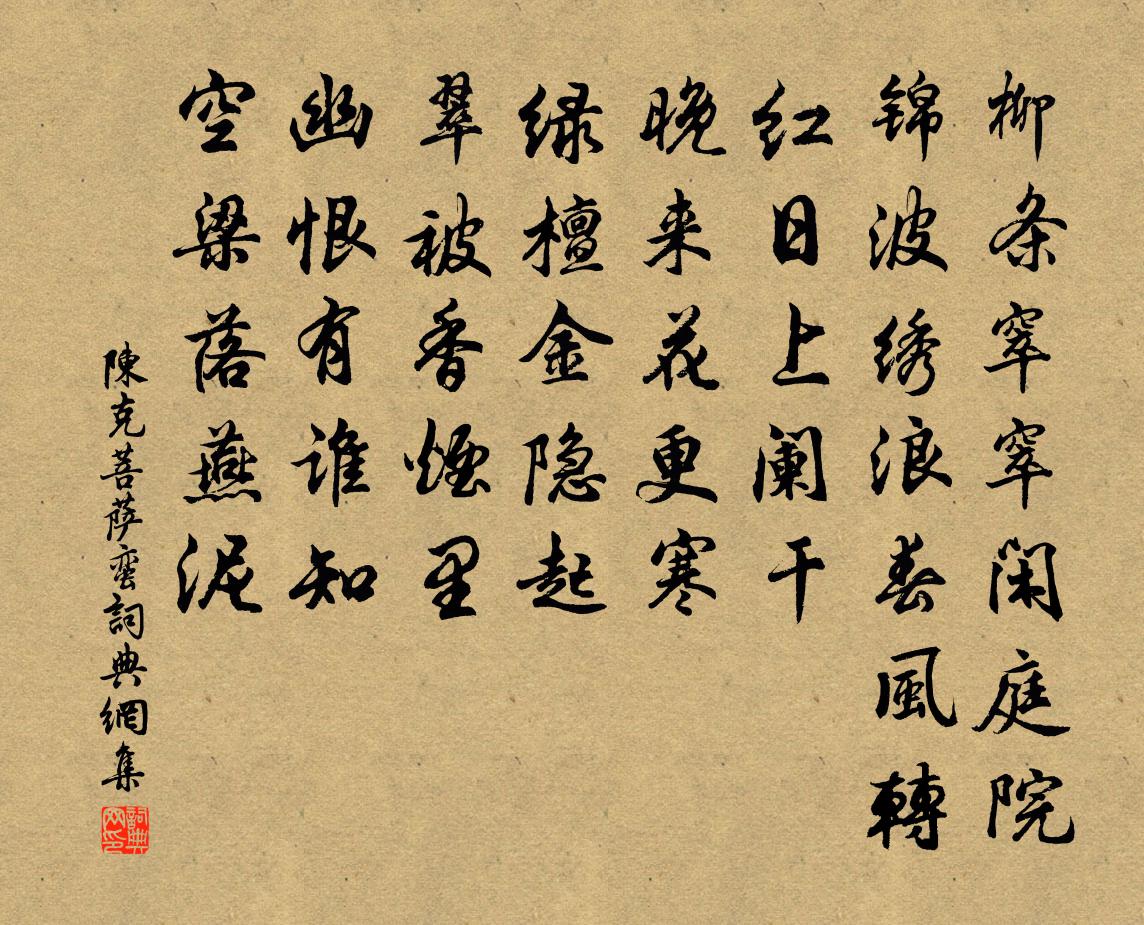 柳条窣窣闲庭院
锦波绣浪春风转
红日上阑干
晚来花更寒
绿檀金隐起
翠被香烟里
幽恨有谁知
空梁落燕泥
陳克菩萨蛮詞典網集
詞典网印